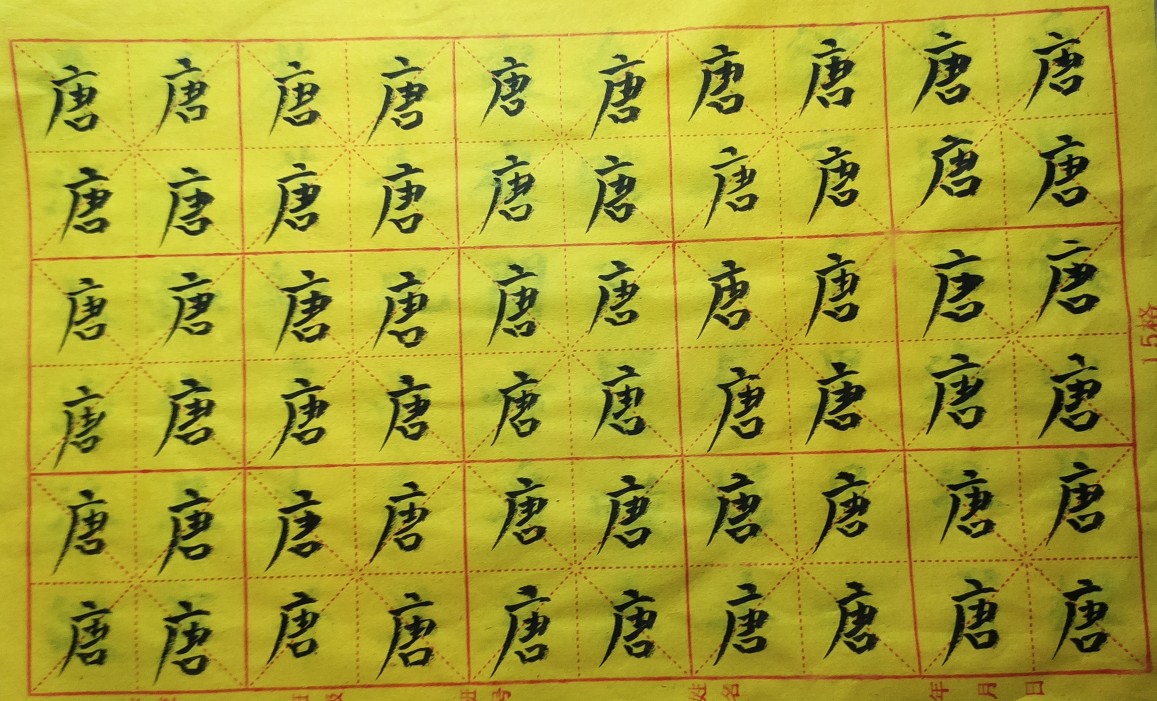 唐唐唐唐唐唐唐唐唐唐
唐唐唐唐唐唐唐唐唐唐
唐唐唐唐唐唐唐唐唐唐
唐唐唐唐唐唐唐唐唐唐
唐唐唐唐唐唐唐唐唐唐
唐唐唐唐唐唐唐唐唐唐
姓名 年 月 日
15格